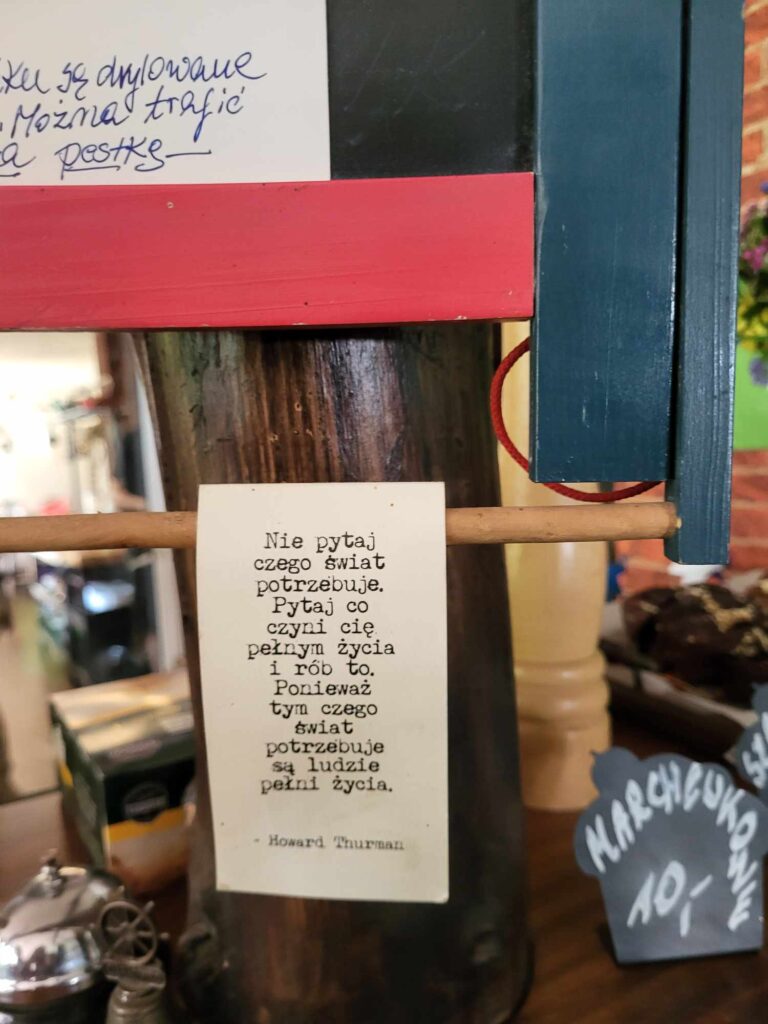 są drylowane
. Można trafić
pestkę
Nie pytaj
czego świat
potrzebuje.
Pytaj co
czyni cię
pełnym życia
i rób to.
Ponieważ
tym czego
świat
potrzebuje
są ludzie
pełni życia.
- Howard Thurman
MARCHEWKOWE
10,-